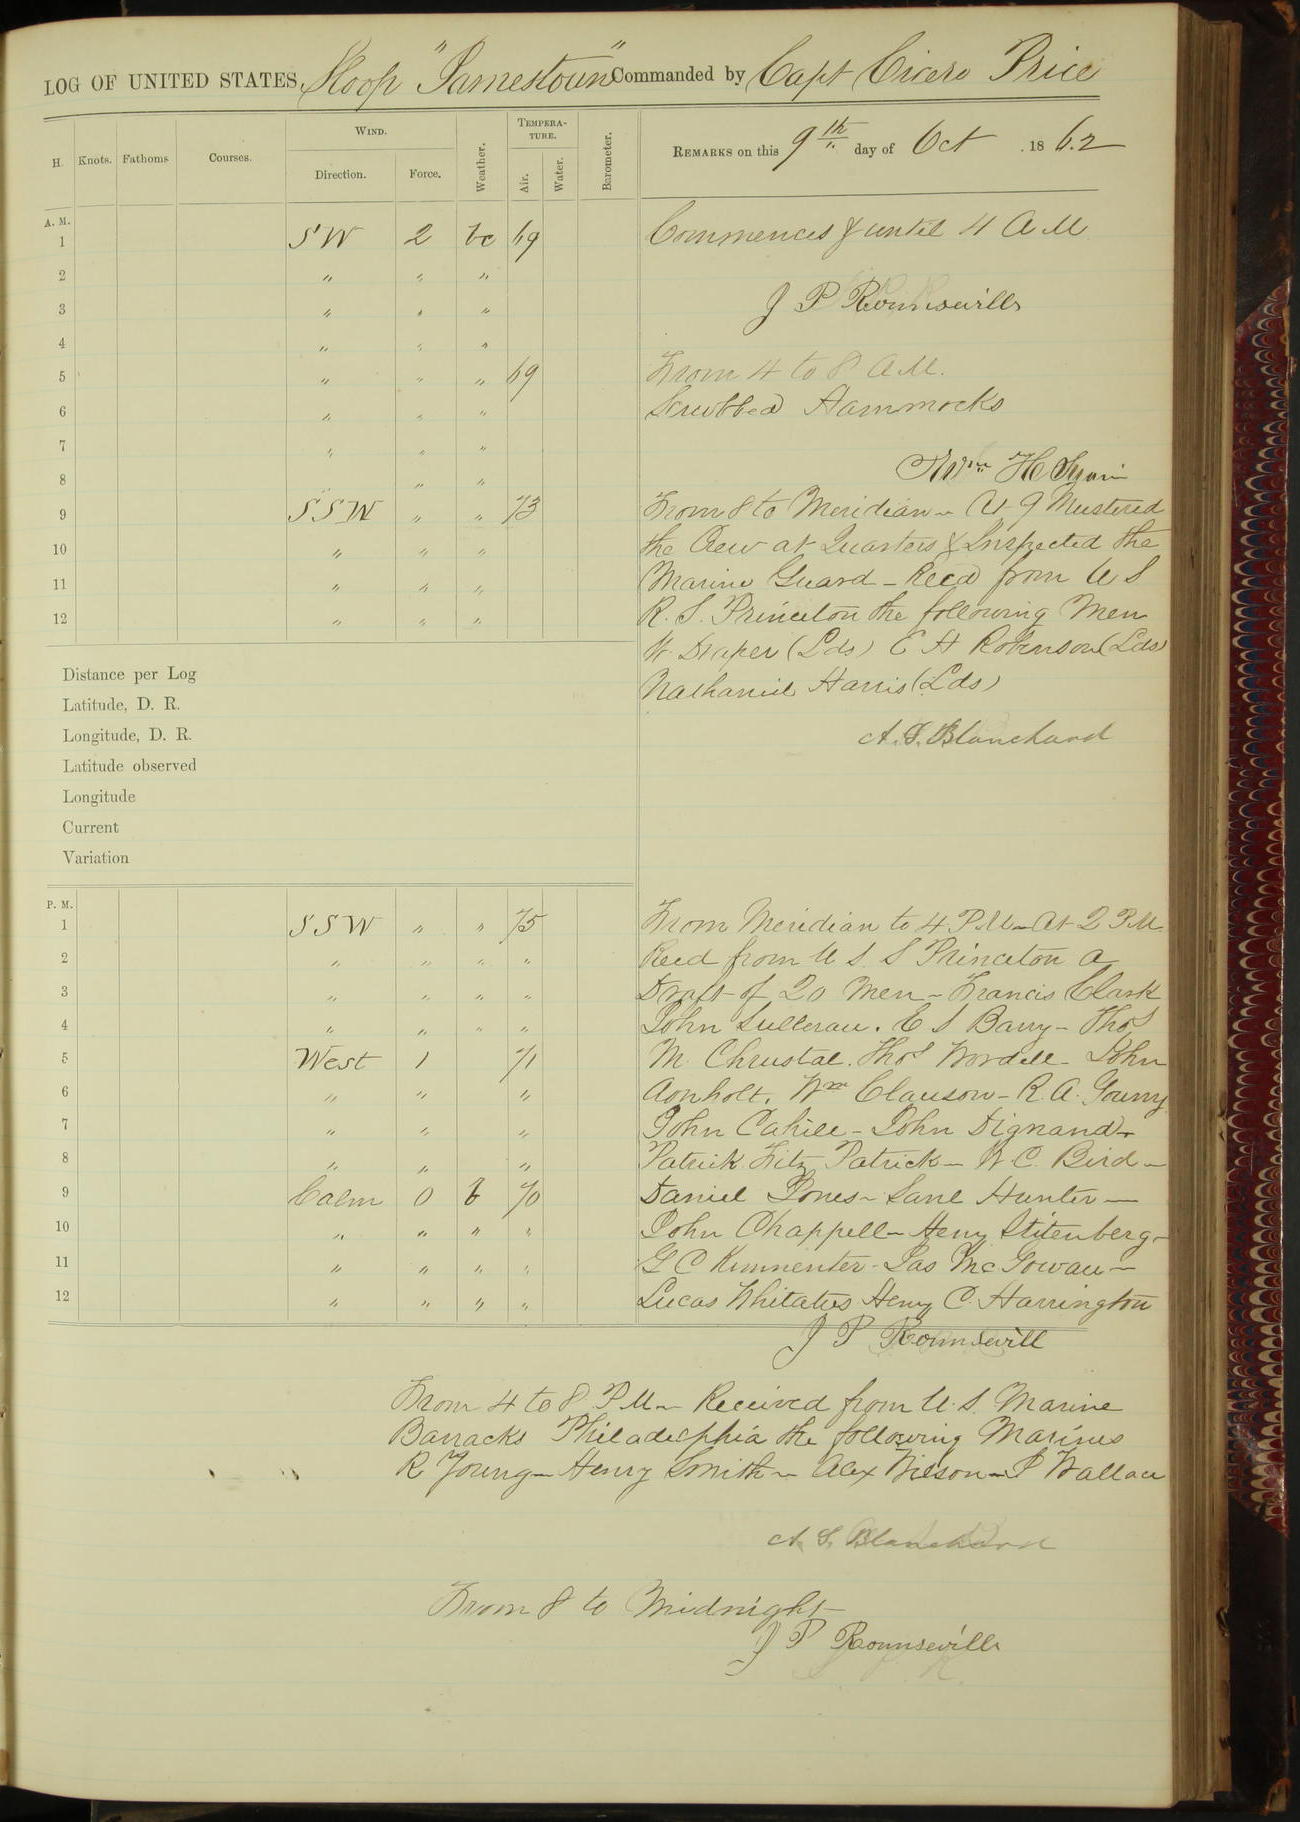 LOG OF UNITED STATES Sloop "Jamestown" Commanded by Capt Cicero Price
H. Knots. Fathoms Courses. WIND. Direction. Force. Weather. TEMPERATURE. Air. Water. Barometer. REMARKS on this 9th day of Oct . 1862
A. M.
1 SW 2 bc 69 Commences & until 4 A M
2 " " "
3 " " " J P Rounsevill
4 " " "
5 " " " 69 From 4 to 8 A.M.
6 " " " Scrubbed Hammocks
7 " " "
8 " " Wm H
9 SSW " " 73 From 8 to Meridian - At 9 Mustered
10 " " " the Crew at Quarters & Inspected the
11 " " " Marine Guard - Recd from U S
12 " " " R. S. Princeton the following Men
W. Draper (Lds) E H Robinson (Lds)
Nathaniel Harris (Lds)
A. S. Blanchard
Distance per Log
Latitude, D. R.
Longitude, D. R.
Latitude observed
Longitude
Current
Variation
P. M.
1 SSW " " 75 From Meridian to 4 P.M - At 2 P.M
2 " " " " Recd from U S. S Princeton a
3 " " " " Draft of 20 Men - Francis Clark
4 " " " " John . E S Barry - Thos
5 West 1 71 M. Chrustal. Thos Wordell - John
6 " " " Wm Clauson - R. A.
7 " " " John Cahill - John Dignand -
8 " " " Patrick Fitz Patrick - W C. Bird -
9 Calm 0 b 70 Daniel Jones - Hunter -
10 " " " " John Chappell - Henry Stitenberg -
11 " " " " G C - Jas McGowan -
12 " " " " Lucas Henry C. Harrington
J P Rounsevill
From 4 to 8 P.M - Received from U. S. Marine
Barracks Philadelphia the following Marines
R Young - Henry Smith - Alex Wilson - P Wallace
A. S. Blanchard
From 8 to Midnight
J P Rounsevill